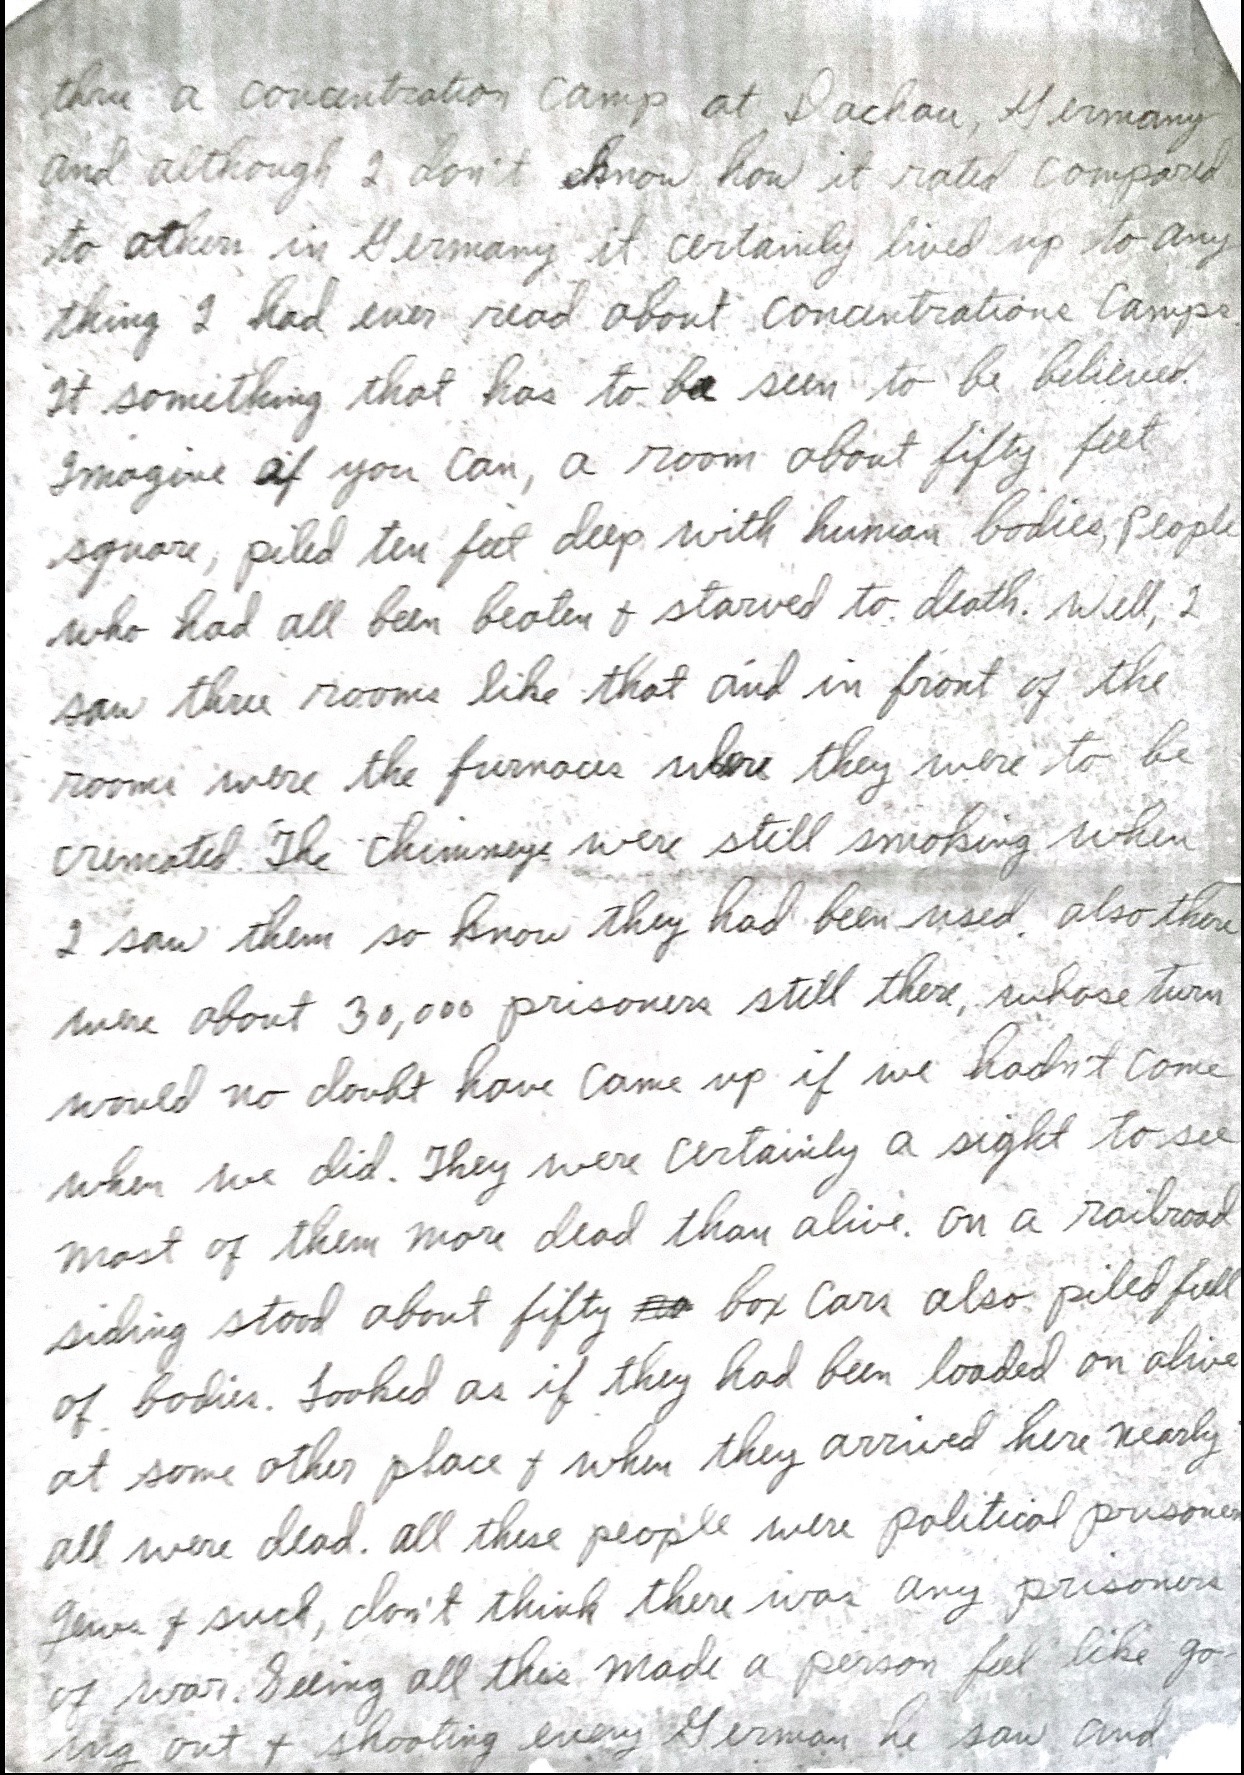 thru a concentration camp at Dachau, Germany
and although I don't know how it rated compared
to others in Germany it certainly lived up to any
thing I had ever read about concentrations camps.
It something that has to be seen to be believed.
Imagine if you can, a room about fifty feet
square, piled ten feet deep with human bodies, People
who had all been beaten & starved to death. Well, I
saw three rooms like that and in front of the
rooms were the furnaces where they were to be
cremated. The chimneys were still smoking when
I saw them so know they had been used. also there
were about 30,000 prisoners still there, whose turn
would no doubt have came up if we hadn't come
when we did. They were certainly a sight to see
most of them more dead than alive. On a railroad
siding stood about fifty box cars also piled full
of bodies. Looked as if they had been loaded on alive
at some other place & when they arrived here nearly
all were dead. all these people were political prisoners
Jews & such, don't think there was any prisoners
of war. Seeing all this made a person feel like go-
ing out & shooting every German he saw and